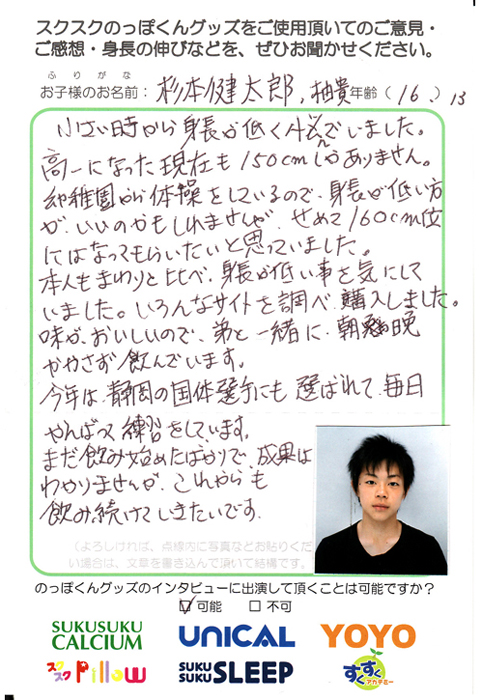 スクスクのっぽくんグッズをご使用頂いてのご意見・
ご感想・身長の伸びなどを、ぜひお聞かせください。
ふりがな
お子様のお名前： 杉本健太郎, 柚貴 年齢（16、）13
小さい時から身長が低く悩んでいました。
高一になった現在も150cmしかありません。
幼稚園から体操をしているので、身長が低い方
が、いいのかもしれませんが、せめて160cm位
にはなってもらいたいと思っていました。
本人もまわりと比べ、身長が低い事を気にして
いました。いろんなサイトを調べ、購入しました。
味が、おいしいので、弟と一緒に、朝、晩
かかさず飲んでいます。
今年は、静岡の国体選手にも選ばれて、毎日
がんばって練習をしています。
まだ飲み始めたばかりで、成果は
わかりませんが、これからも
飲み続けていきたいです。
（よろしければ、点線内に写真などお貼りくだ
い場合は、文章を書き込んで頂いて結構です。
のっぽくんグッズのインタビューに出演して頂くことは可能ですか？
☑ 可能 □ 不可
SUKUSUKU CALCIUM
UNICAL
YOYO
スクスク Pillow
SUKU SUKU SLEEP
すくすくアカデミー